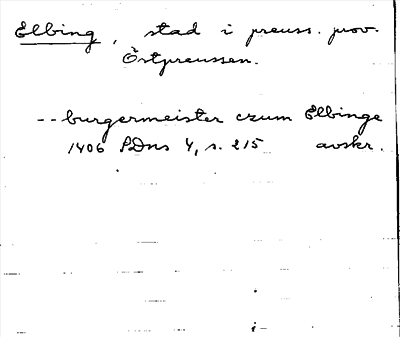 Elbing, stad i preuss. prov.
Östpreussen.
-- burgermeister czum Elbinge
1406 SDns 4, s. 215 avskr.